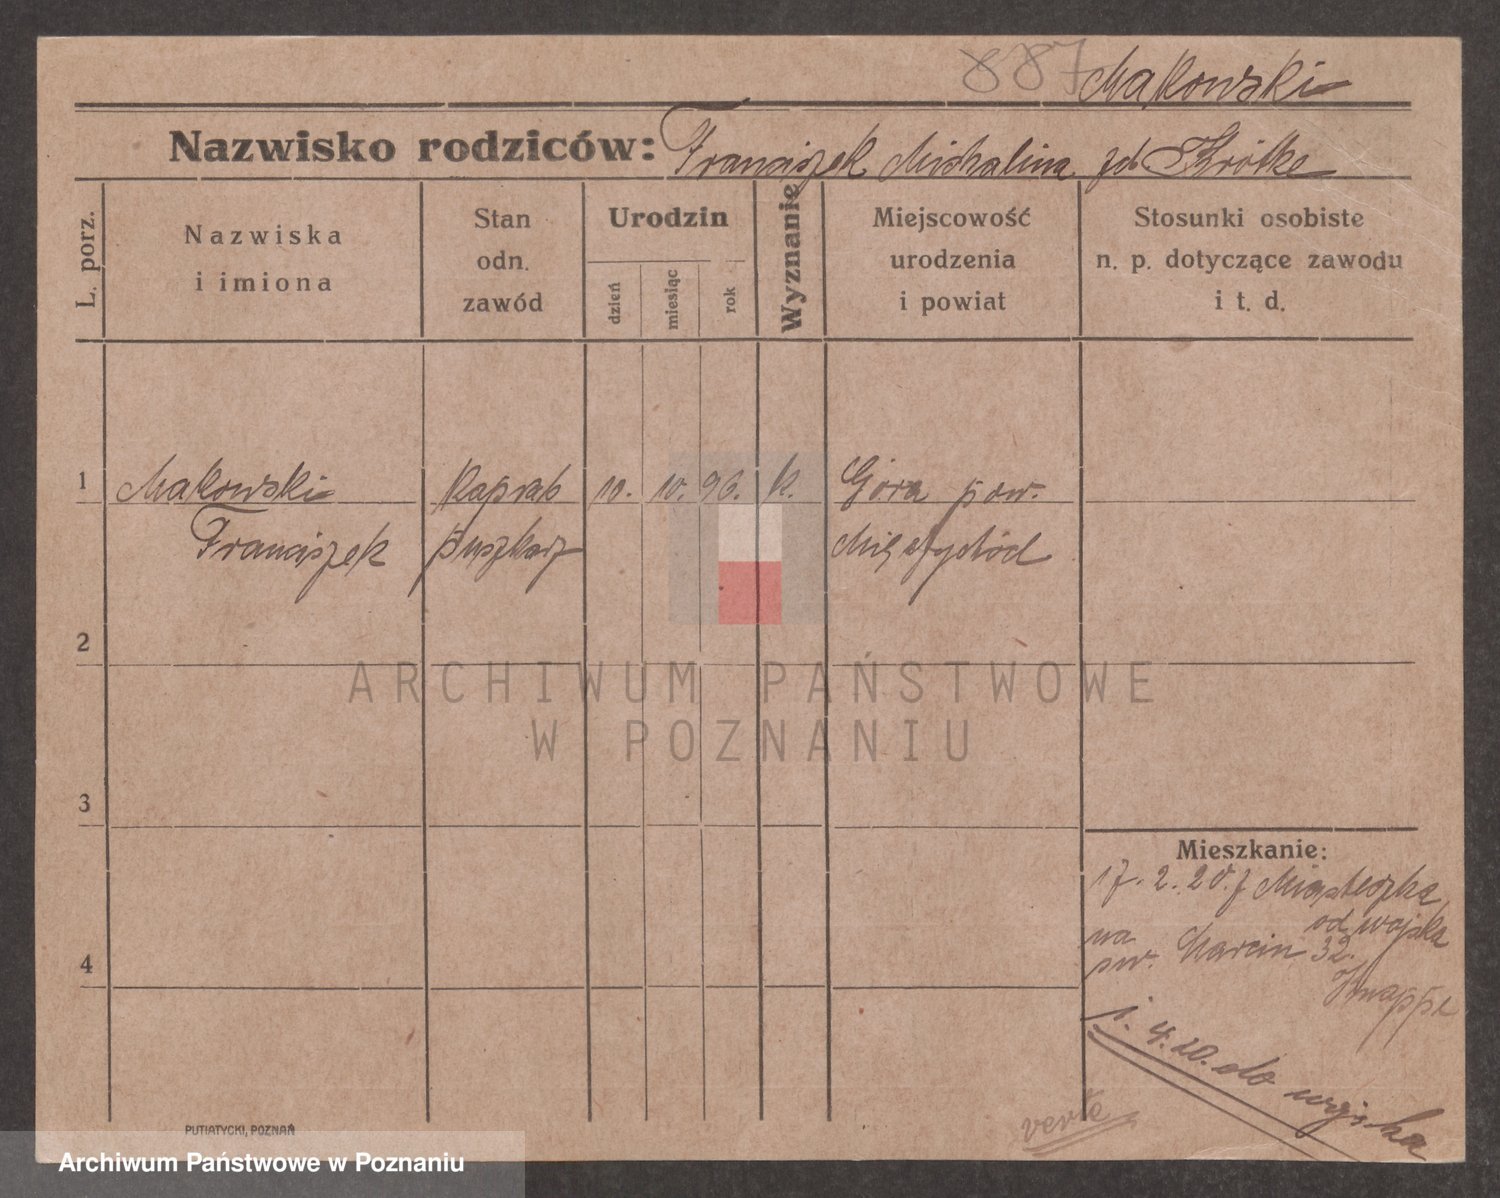 887 Makowski
Nazwisko rodziców: Franciszek Michalina zd. Krótke
L. porz.
Nazwiska
i imiona
Stan
odn.
zawód
Urodzin
dzień
miesiąc
rok
Wyznanie
Miejscowość
urodzenia
i powiat
Stosunki osobiste
n. p. dotyczące zawodu
i t. d.
1 Makowski Kapral 10. 10. 96. k. Góra pow.
Franciszek puszkarz Międzychód
2
3
4
Mieszkanie:
17. 2. 20. z Miasteczka
od wojska
na
św. Marcin 32.
Knappe
1. 4. 20. do wojska
verte
PUTIATYCKI, POZNAŃ
ARCHIWUM PAŃSTWOWE
W POZNANIU
Archiwum Państwowe w Poznaniu